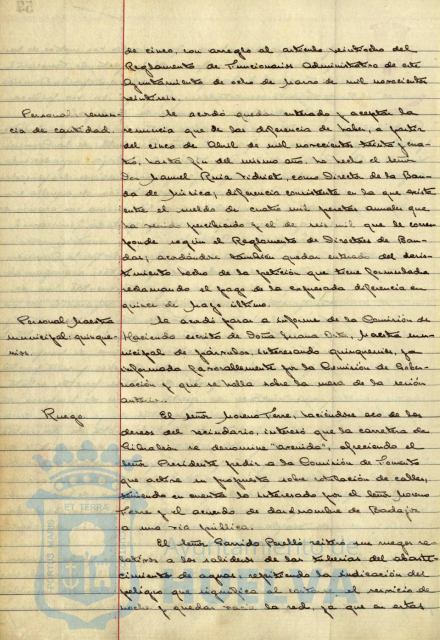 de cinco, con arreglo al artículo veintiocho del
Reglamento de Funcionarios Administrativos de este
Ayuntamiento de ocho de Marzo de mil novecientos
veintiseis.
Personal: renun-
cia de cantidad.
Se acordó quedar enterado y aceptar la
renuncia que de las diferencia de haber, a partir
del cinco de Abril de mil novecientos treinta y cua-
tro, hasta fin del mismo año, ha hecho el señor
Don Manuel Ruiz Vidriet, como Director de la Ban-
da de Música; diferencia consistente en la que existe
entre el sueldo de cuatro mil pesetas anuales que
ha venido percibiendo y el de seis mil que le corres-
ponde según el Reglamento de Directores de Ban-
das; acordándose también quedar enterado del desis-
timiento hecho de la petición que tiene formulada
reclamando el pago de la expresada diferencia en
quince de Mayo último.
Personal: Maestra
municipal: quinque-
nios.
Se acordó pasar a informe de la Comisión de
Hacienda escrito de Doña Juana Ortiz, Maestra mu-
nicipal de párvulos, interesando quinquenios, ya
informado favorablemente por la Comisión de Gober-
nación y que se halla sobre la mesa de la sesión
anterior.
Ruego.
El señor Moreno Torre, haciéndose eco de los
deseos del vecindario, interesó que la carretera de
Gibraleón se denomine "avenida", ofreciendo el
señor Presidente pedir a la Comisión de Fomento
que active su propuesta sobre rotulación de calles,
teniendo en cuenta lo interesado por el señor Moreno
Torre y el acuerdo de dar el nombre de Badajoz
a una vía pública.
El señor Garrido Perelló reitera sus ruegos re-
lativos a los salideros de las tuberías del abaste-
cimiento de aguas, repitiendo la indicación del
peligro que significa al cortarse el servicio de
noche y quedar vacía la red, ya que en estas
PORTUS MARIS ET TERRAE